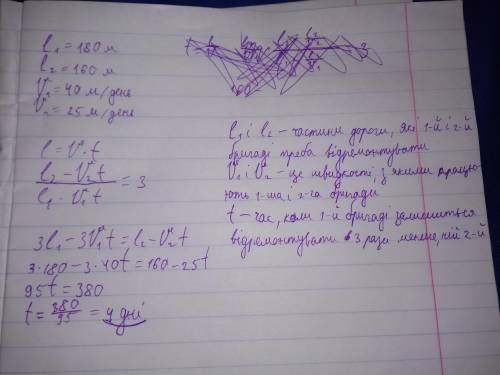 l₁ = 180 м
l₂ = 160 м
V₁ = 40 м/день
V₂ = 25 м/день
l = V · t
l₂ - V₂t / l₁ - V₁t = 3
3l₁ - 3V₁t = l₂ - V₂t
3·180 - 3·40t = 160 - 25t
95t = 380
t = 380/95 = 4 дні
l₁ і l₂ - частини дороги, які 1-й і 2-й
бригаді треба відремонтувати
V₁ і V₂ - це швидкості, з якими працю-
ють 1-ша і 2-га бригади
t - час, коли 1-й бригаді залишиться
відремонтувати в 3 рази менше, ніж 2-й